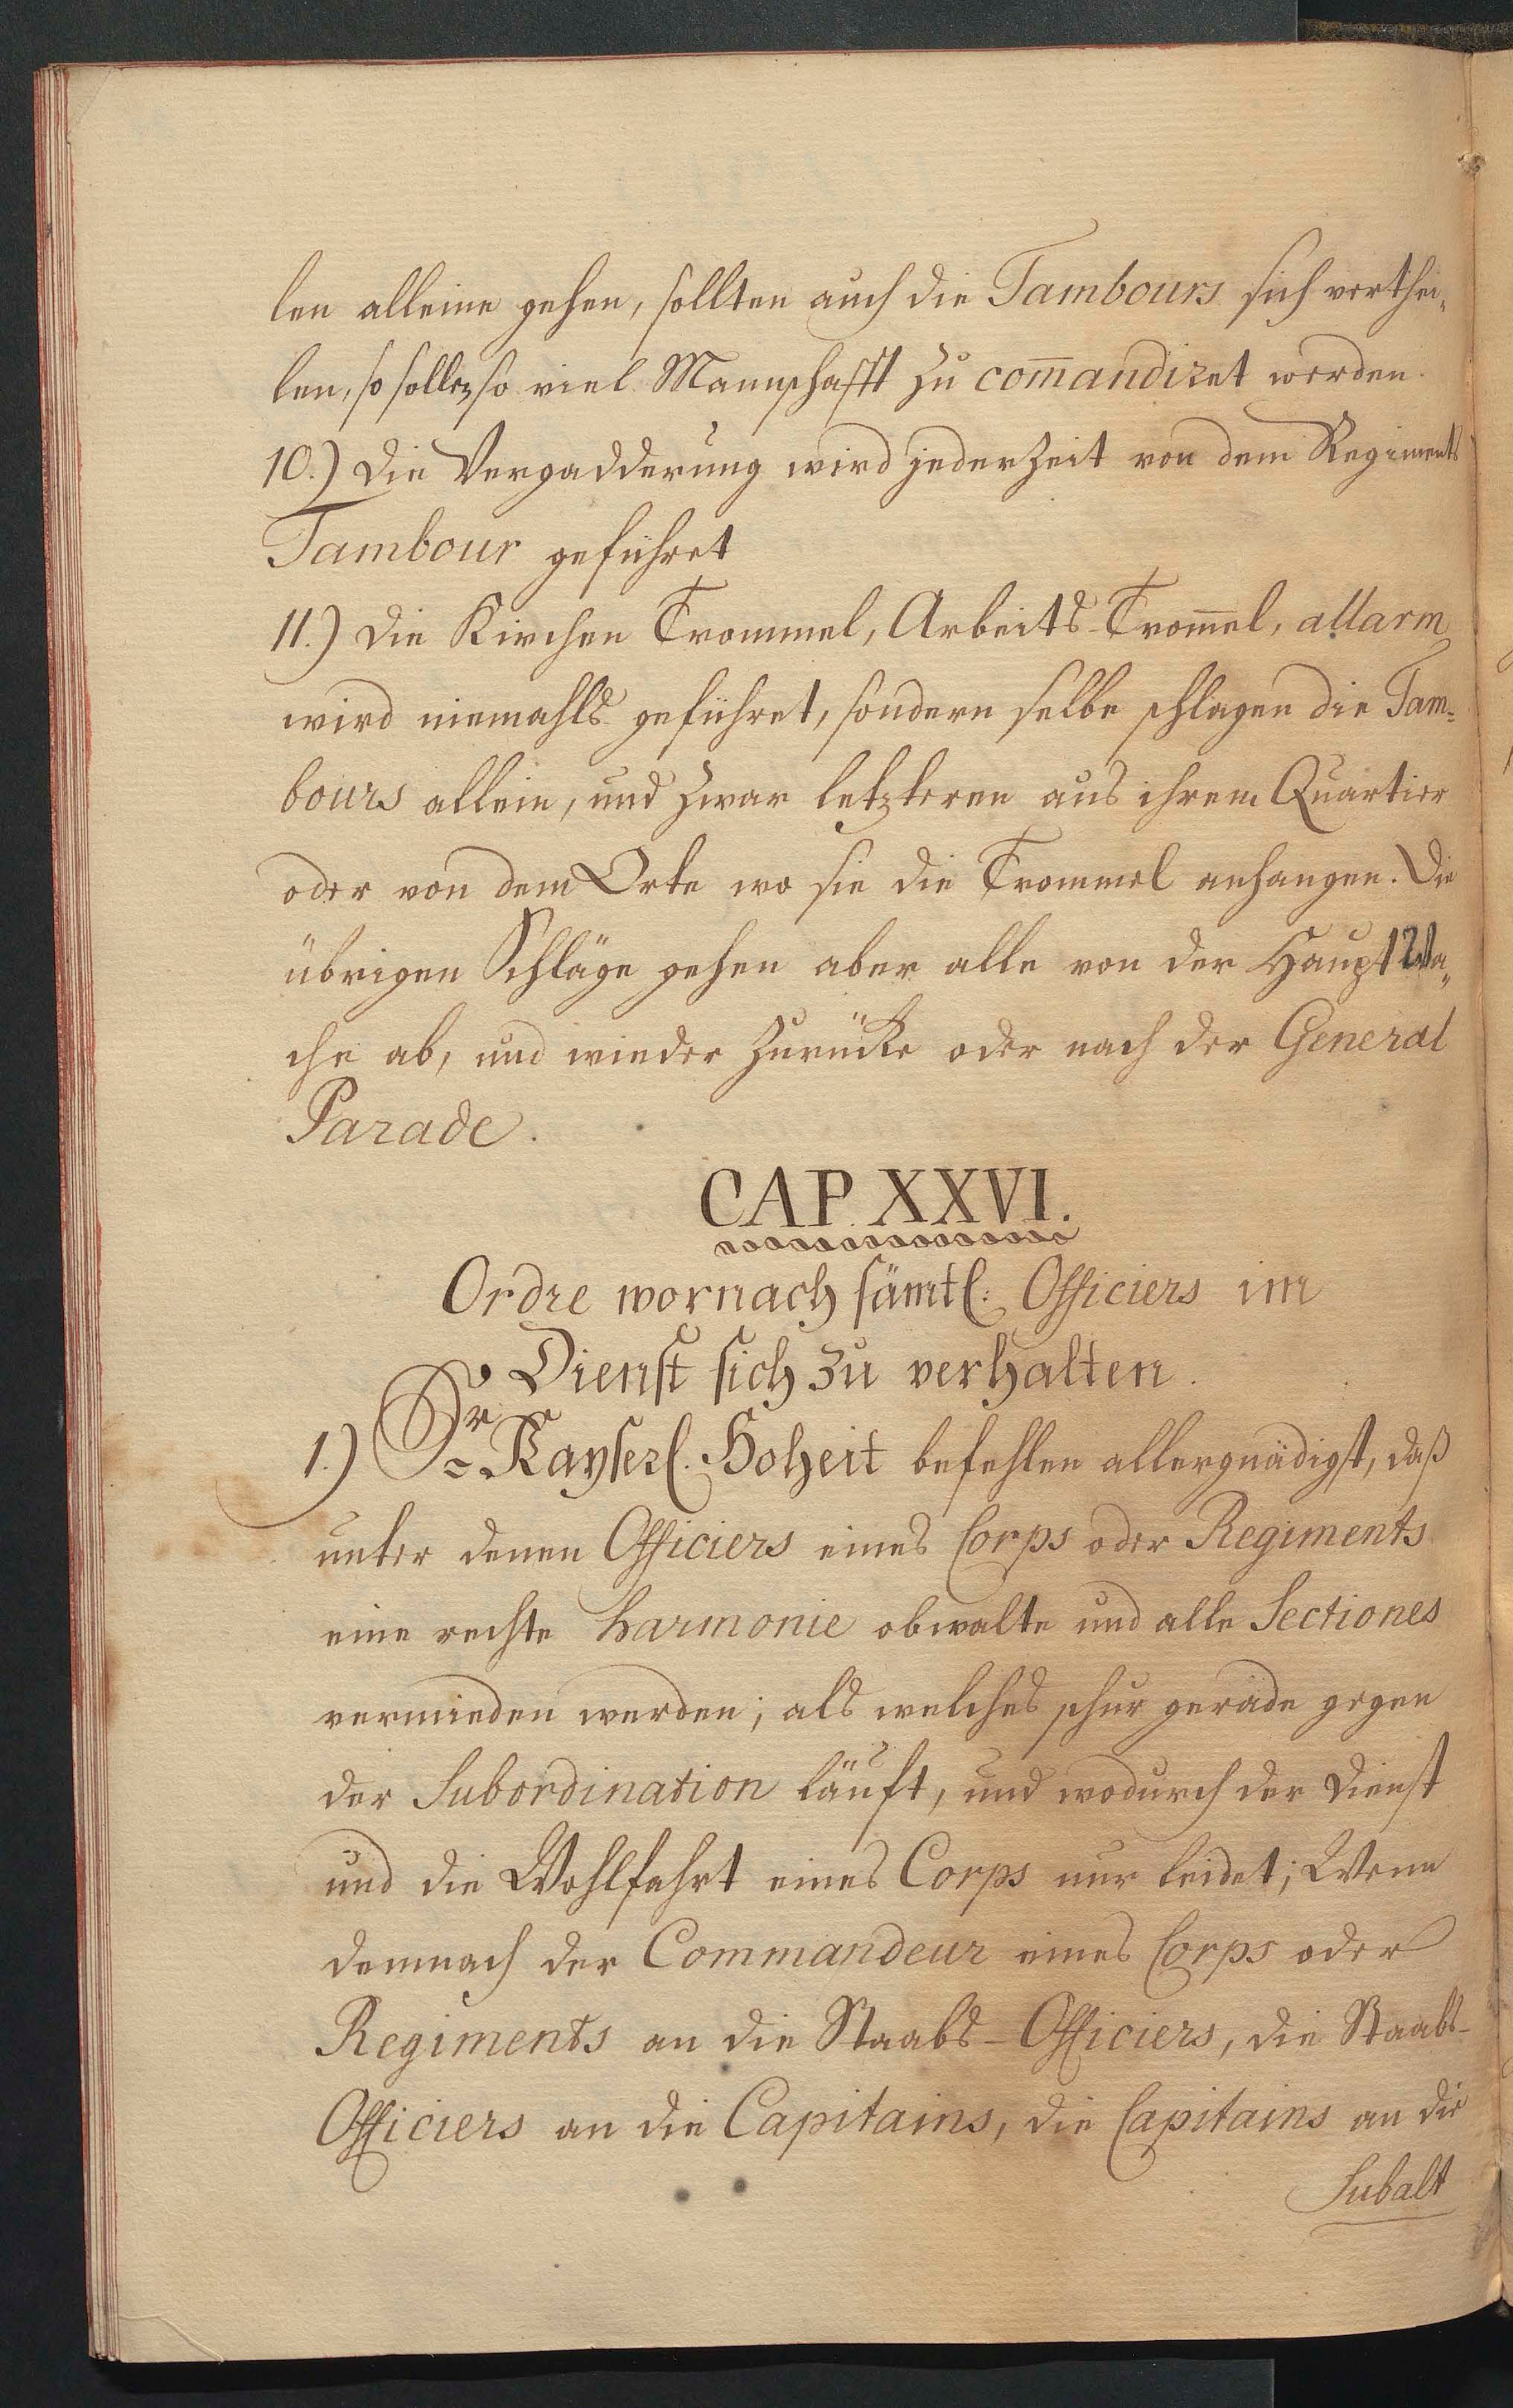 len alleine gehen, sollten auch die Tambours sich verthei„
len, so sollen so viel Mannschafft zu com̄andiret werden.
10.) Die Vergadderung wird jederzeit von dem Regiments
Tambour geführet
11.) Die Kirchen Trommel, Arbeits-Trom̄el, allarm
wird niemahls geführet, sondern selbe schlagen die Tam=
bours allein, und zwar letzteren aus ihrem Quartier
oder von dem Orte wo sie die Trommel anhangen. Die
übrigen Schläge gehen aber alle von der Haupt Wa„
che ab, und wieder zurücke oder nach der General
Parade.
CAP. XXVI.
Ordre wornach sämtl: Officiers im
Dienst sich zu verhalten.
1.) Sr Kayserl. Hoheit befehlen allergnädigst, daß
unter denen Officiers eines Corps oder Regiments
eine rechte Harmonie obwalte und alle Sectiones
vermieden werden; als welches schnur gerade gegen
der Subordination läuft, und wodurch der Dienst
und die Wohlfahrt eines Corps nur leidet; Wenn
demnach der Commandeur eines Corps oder
Regiments an die Staabs-Officiers, die Staabs-
Officiers an die Capitains, die Capitains an die
Subalt